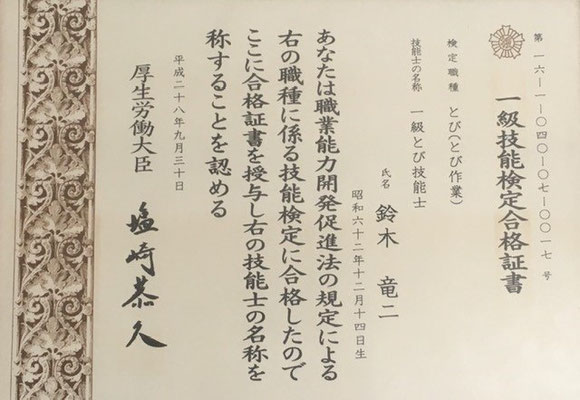 第一六―一―〇四〇―〇七―〇〇一七号
一級技能検定合格証書
検定職種 とび(とび作業)
技能士の名称 一級とび技能士
氏名 鈴木 竜二
昭和六十二年十二月十四日生
あなたは職業能力開発促進法の規定による
右の職種に係る技能検定に合格したので
ここに合格証書を授与し右の技能士の名称を
称することを認める
平成二十八年九月三十日
厚生労働大臣 塩崎恭久